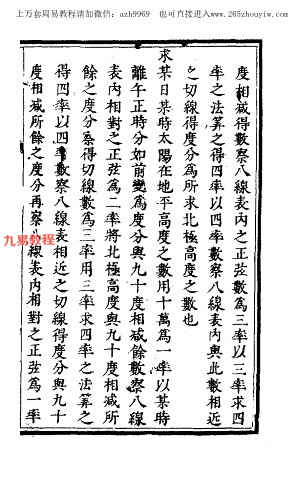 上万套周易教程请加微信:azh9969 也可直接进入:www.265zhouyiw.com
度相減得數察八線表內之正弦數為三率以三率求四
率之法算之得四率以四率數察八線表內與此數相近
之切線得度分為所求北極高度之數也
求某日某時太陽在地平高度之數用十萬為一率以某時
離午正時分如前變為度分與九十度相減餘數察八線
表內相對之正弦為二率將北極高度與九十度相減所
餘之度分察得切線數為三率用三率求四率之法算之
得四率以四率數察八線表相近之切線得度分與九十
度相減所餘之度分再察八線表內相對之正弦為一率
九易教程